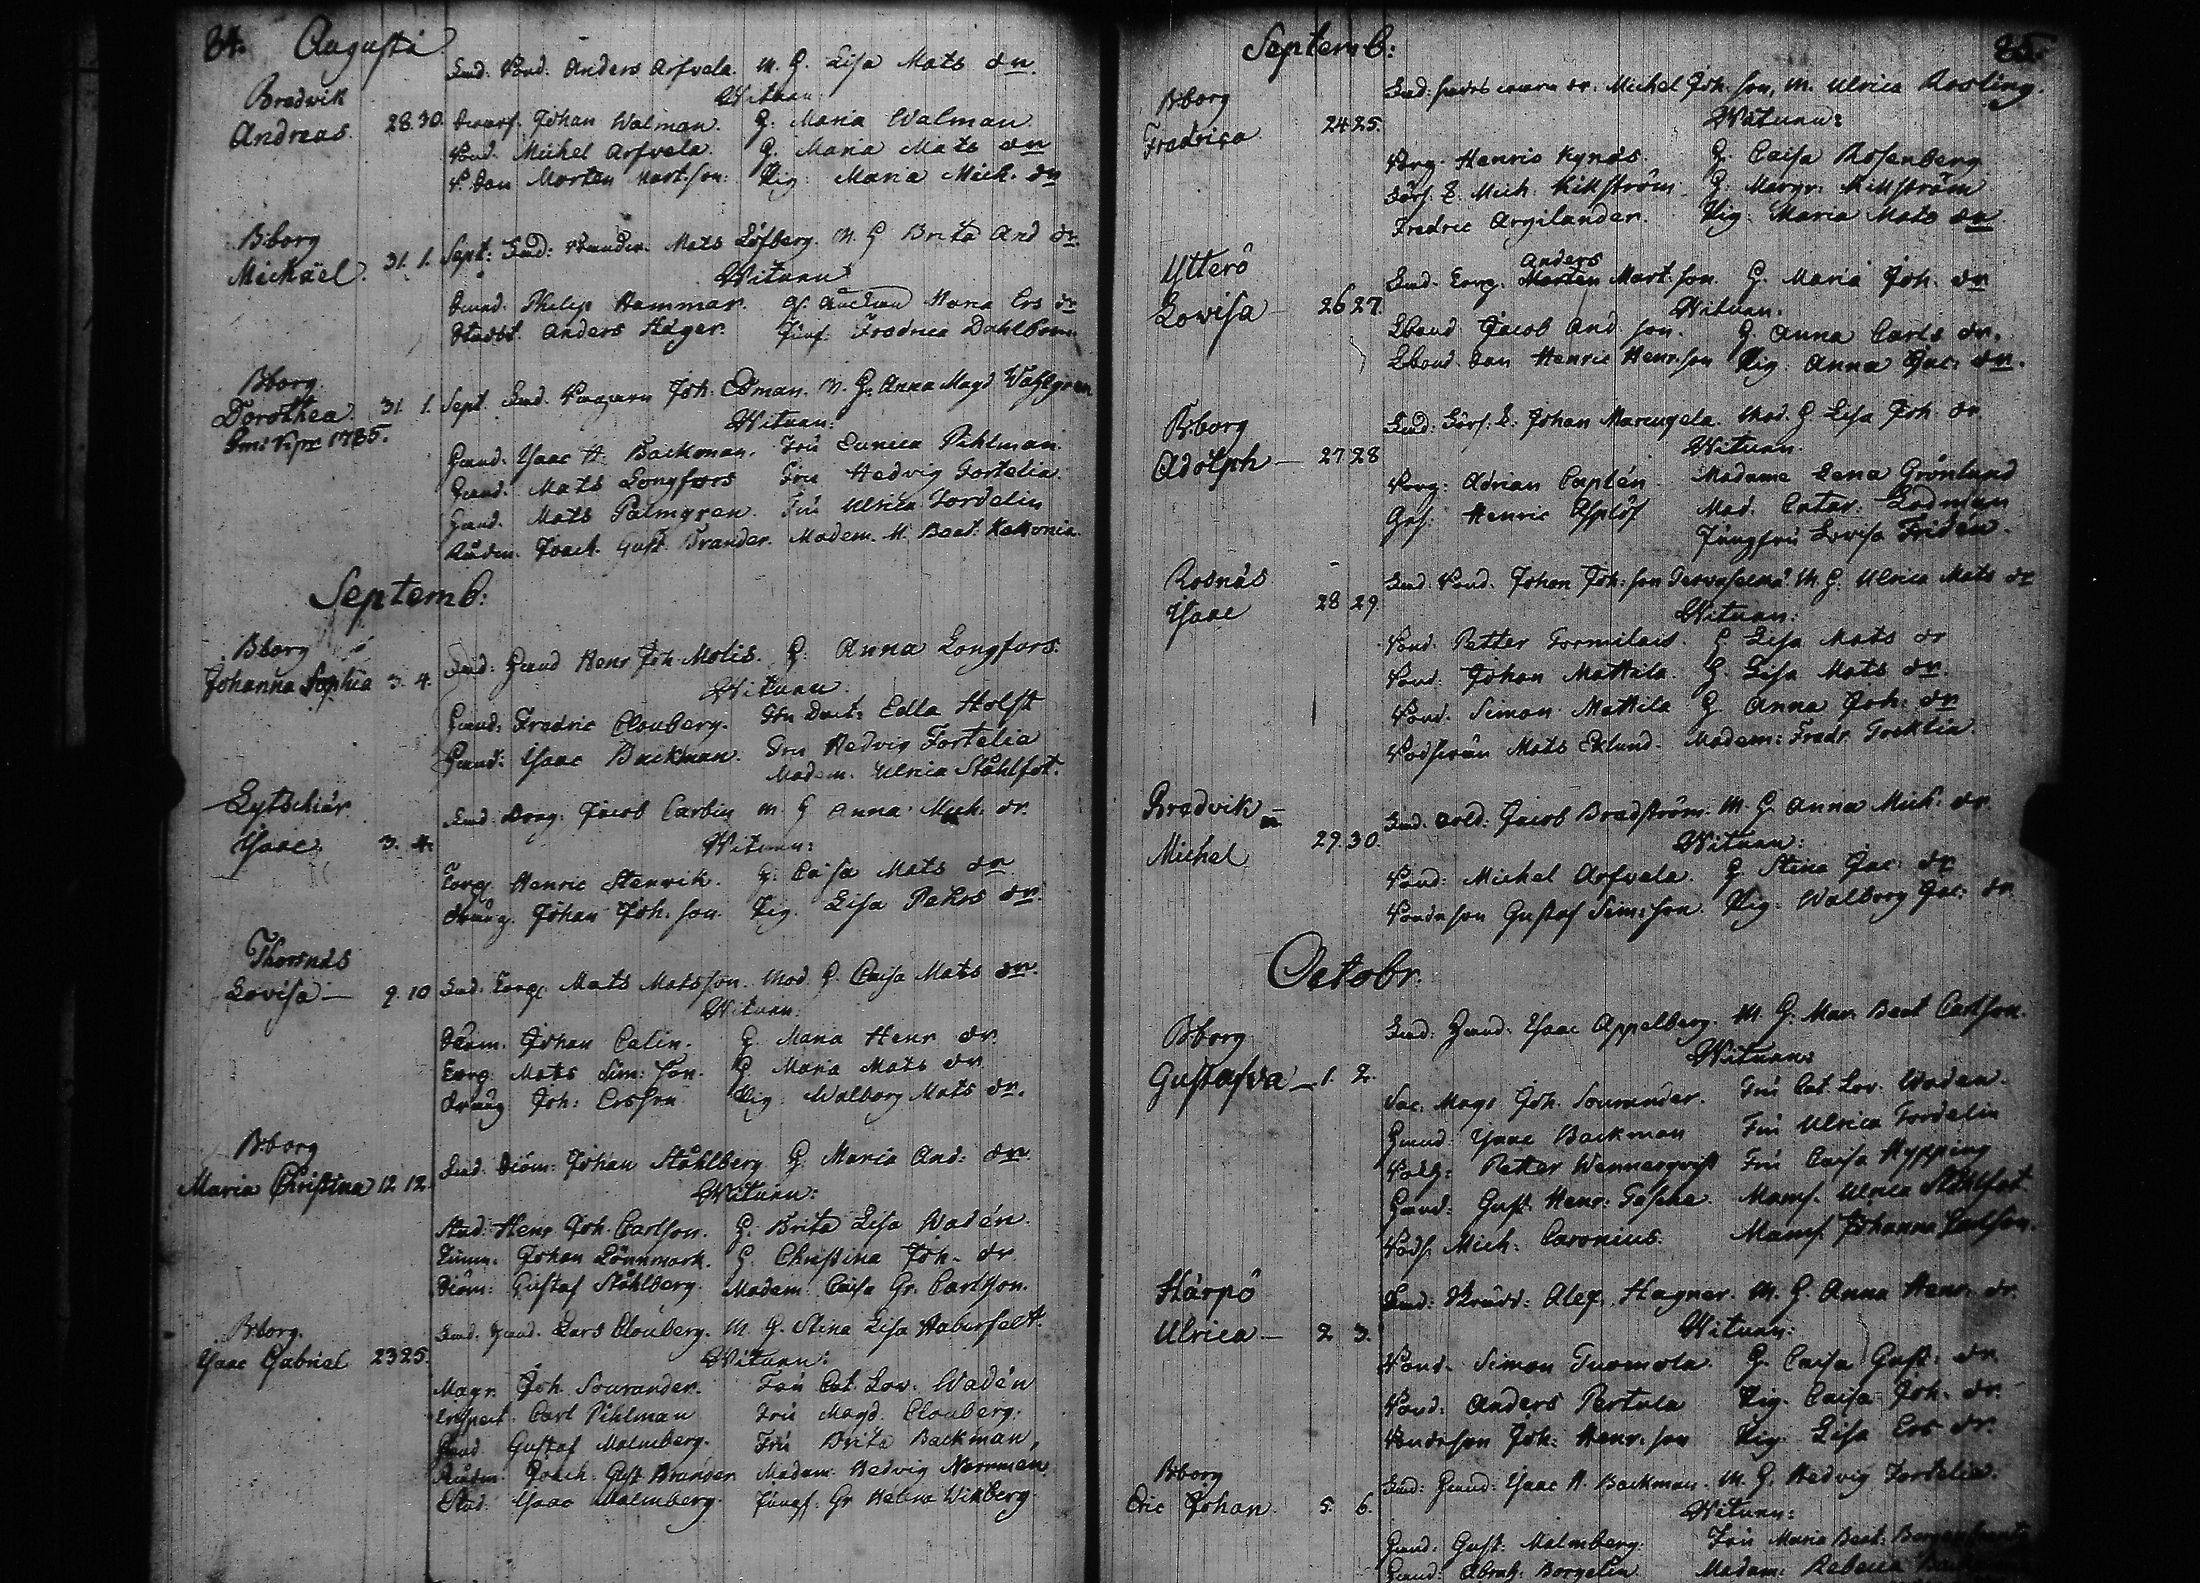 84. Augusti
Bredvik
Andreas. 28.30.
And: Bond. Anders Arfvela. M. H. Lisa Mats dr.
Witnen:
Johan Walman. H. Maria Walman
Bond. Michel Arfvela. H. Maria Mats dr
Morten Mart.son. Pig. Maria Mich. dr
Bborg
Michäel. 31. 1. Sept: Mats Löfberg. M. H. Brita And dr.
Witnen:
Philip Hammar. Maria Ers dr
Anders Häger. Jūnf. Fredrica Dahlbom
Bborg.
Dorothea 31. 1. Sept. Joh. Ödman. M. H. Anna Magd Wahlgren
1785.
Witnen:
Hand. Isaac H. Backman. Frū Eunica Pihlman
Hand. Mats Longfors Frū Hedvig Fortelia.
Hand. Mats Palmgren. Frū Ulrica Fordelin
Joach. Gust. Brander. Madem. M. Beat.
Septemb:
Bborg
Johanna Sophia 3. 4. Hand Henr Joh Molis. H. Anna Longfors.
Witnen.
Hand: Fredric Clouberg. Edla Holst
Hand: Isaac Backman. Frū Hedvig Fortelia
Madem. Ulrica Ståhlfot.
Lytschär
Isaac. 3. 4. Jacob Carbin M. H Anna Mich. dr.
Witnen:
Torp. Henric Stenvik. H. Caisa Mats dr
Dräng. Johan Joh. son. Pig. Lisa Pehrs dr.
Thorsnäs
Lovisa — 9. 10 Torp. Mats Matsson. Mod. H. Caisa Mats dr.
Witnen:
Johan Calin. H. Maria Henr dr.
Torp. Mats Sim: son. H. Maria Mats dr
Dräng Joh: Ersson Pig. Walborg Mats dr.
Bborg
Maria Christina 12 12. Johan Ståhlberg H. Maria And: dr.
Witnen:
Stud: Henr Joh Carlson. H. Brita Lisa Wadén.
Johan Lönnmark. H. Christina Joh. dr
Gustaf Ståhlberg. Madem. Caisa Gr. Carlson.
Bborg.
Isaac Gabriel 23 25. Hand. Lars Clouberg. M. H. Stina Lisa Haberfelt.
Witnen:
Magr. Joh. Sourander. Frū Cat. Lov. Wadén
Inspect. Carl Pihlman Frū Magd. Clouberg.
Hand. Gustaf Malmberg. Frū Brita Backman,
Joach. Gust Brander Madem. Hedvig Norrmen
Stud. Isaac Malmberg. Jūngf. Gr Helena Wikberg.
Septemb: 85.
Bborg
Fredrica 24 25. Michel Joh. son, M. Ulrica Rosling.
Witnen:
Borg. Henric Kynäs. H. Caisa Rosenberg
Mich. Killström. H. Margr. Killström
Fredric Argilander Pig. Maria Mats dr
Ytterö
Lovisa — 26 27.
Anders
Torp. Morten Mart. son. H. Maria Joh. dr
Witnen.
Jacob And. son. H Anna Carls dr.
Henric Henrson Pig. Anna Jac: dr.
Bborg
Adolph — 27 28 Johan Marcugela. Mod. H Lisa Joh. dr
Witnen.
Borg: Adrian Caplén. Madame Lena Grönlund
Henric Asplöf Mad. Catar. Lodman
Jūngfrū Lovisa Fridén.
Rosnäs
Isaac 28 29. Bond. Johan Joh. son M. H. Ulrica Mats dr
Witnen:
Bond. Petter Tormilais H Lisa Mats dr
Bond. Johan Mattila. H. Lisa Mats dr.
Bond. Simon Mattila H Anna Joh: dr
Mats Eklund. Madem: Fredr.
Bredvik
Michel 29.30. Jacob Bredström. M. H. Anna Mich. dr
Witnen:
Bond: Michel Arfvela. H Stina Jac: dr
Bondeson Gustaf Sim: son. Pig. Walborg Jac: dr.
Octobr.
Bborg
Gustafva — 1. 2. Hand. Isaac Appelberg. M. H. Mar. Beat Carlson.
Witnen:
Sac. Mag: Joh. Sourander. Frū Cat. Lov. Waden.
Hand. Isaac Backman Frū Ulrica Fordelin
Petter Wennerqvist Frū Caisa Nypping
Hand. Gust. Henr: Tesche Mamf. Ulrica Ståhlfot
Mich: Caronius. Mamf. Johanna Carlson.
Härpö
Ulrica — 2 3. Alex. Hagner. M. H. Anna Henr. dr.
Witnen:
Bond. Simon Tuomola. H. Caisa Gust. dr.
Bond: Anders Pertula Pig. Caisa Joh. dr.
Bondeson Joh: Henr. son Pig. Lisa Ers dr.
Bborg
Eric Johan 5. 6. Hand: Isaac H. Backman. M. H. Hedvig Fortelia.
Witnen:
Hand: Gust. Malmberg. Frū Maria Beat:
Hand: Abrah: Borgelin Madam: Rebecca